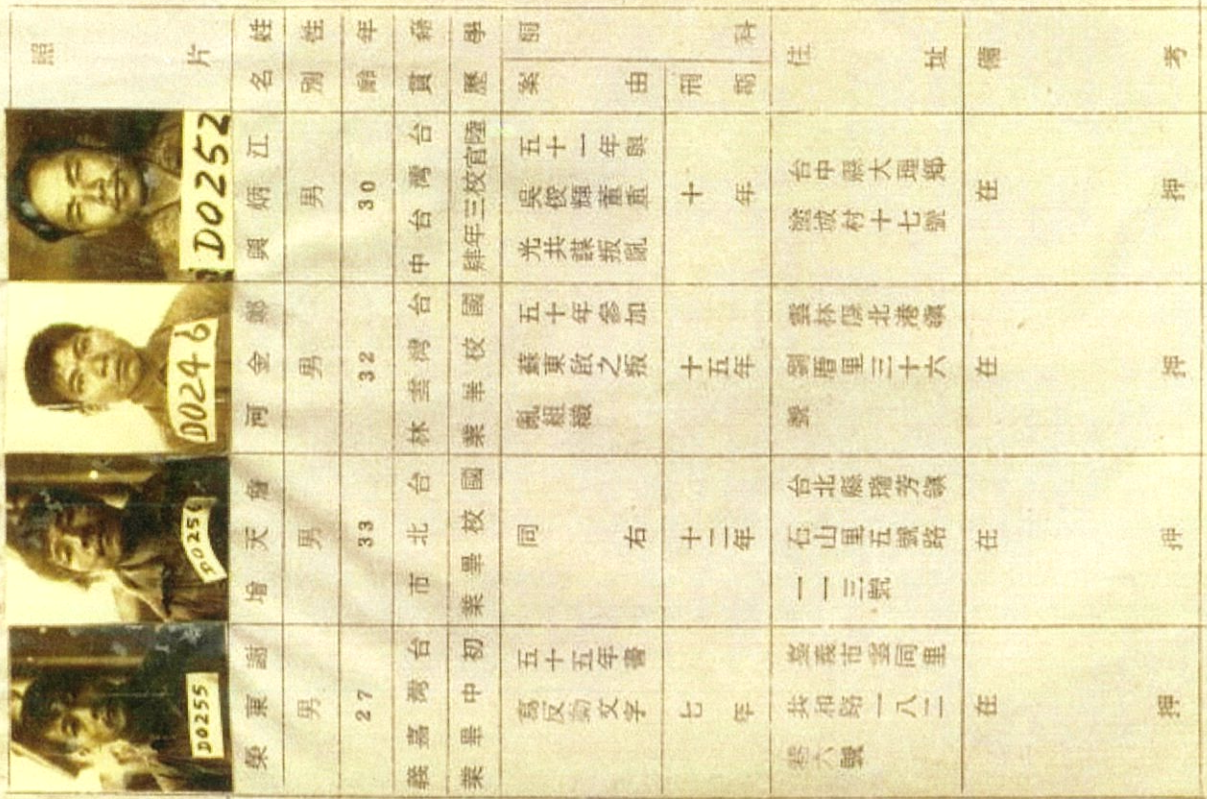 照片
姓名
性別
年齡
籍貫
學歷
前科
案由
刑期
住址
備考
D0252
江炳興
男
30
台灣台中
陸官校三年肄
五十一年與
吳俊輝董重
光共謀叛亂
十年
台中縣大理鄉
塗城村十七號
在押
D0246
鄭金河
男
32
台灣雲林
國校畢業
五十年參加
蘇東啟之叛
亂組織
十五年
雲林縣北港鎮
劉厝里三十六
號
在押
詹天增
男
33
台北市
國校畢業
同右
十二年
台北縣瑞芳鎮
石山里五號路
一一三號
在押
D0255
謝東榮
男
27
台灣嘉義
初中畢業
五十五年書
寫反動文字
七年
嘉義市雲同里
共和路一八二
巷六號
在押